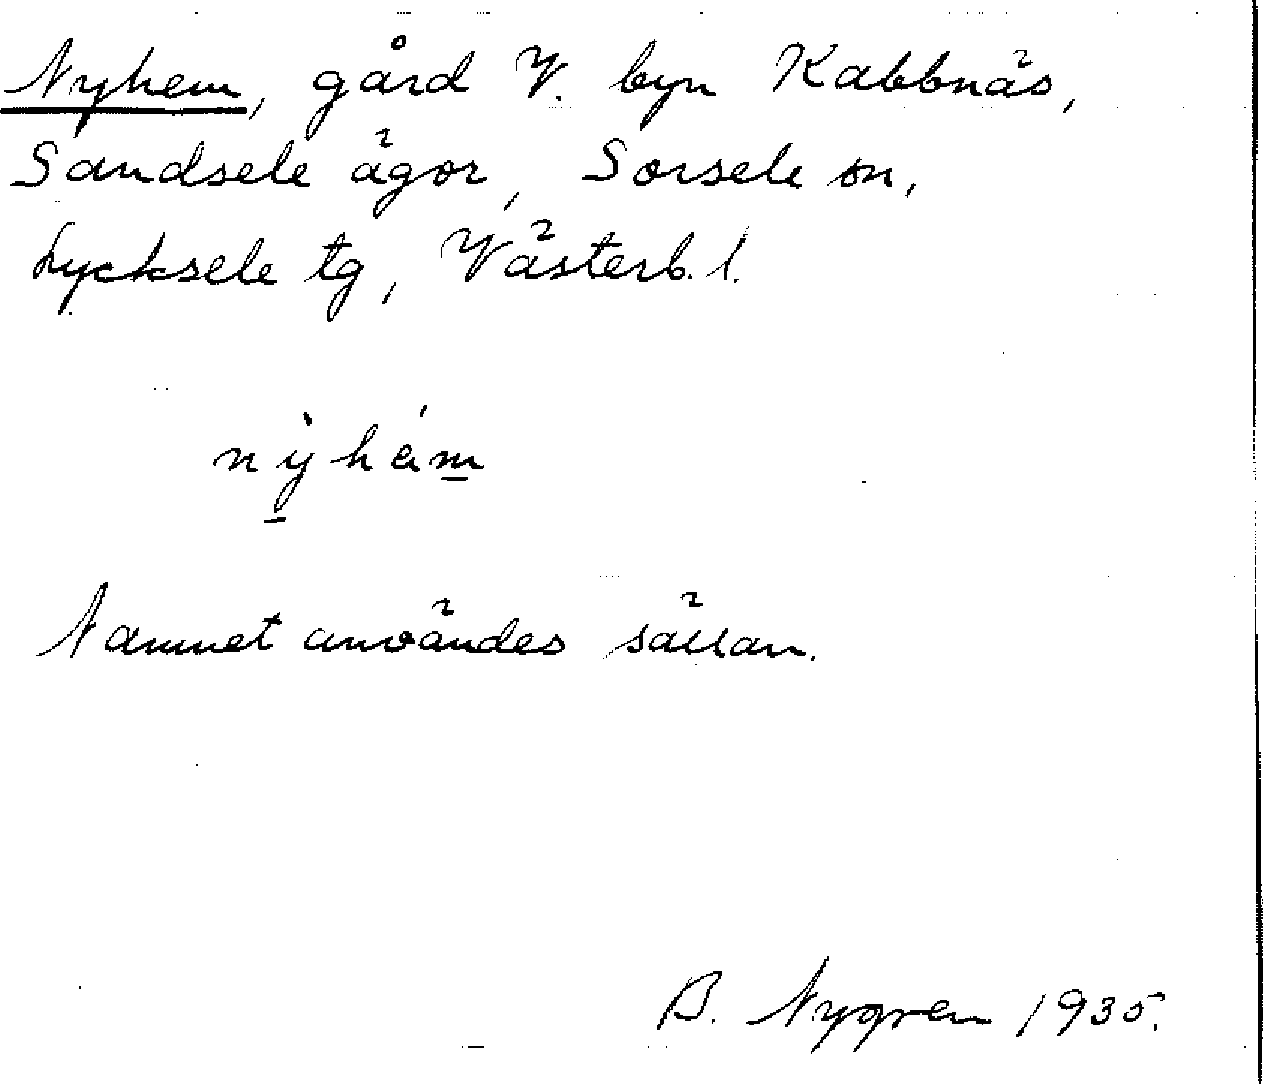 Nyhem, gård V. byn Kabbnäs,
Sandsele ägor, Sorsele sn,
Lycksele tg, Västerb. l.
nỳhém
Namnet användes sällan.
B. Nygren 1935.